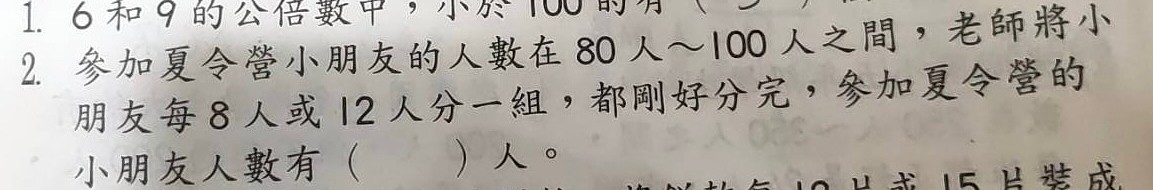 1. 6和9的公倍數中，小於100的有（5）
2. 參加夏令營小朋友的人數在80人～100人之間，老師將小
朋友每8人或12人分一組，都剛好分完，參加夏令營的
小朋友人數有（　　）人。
餅乾每12片或15片裝成